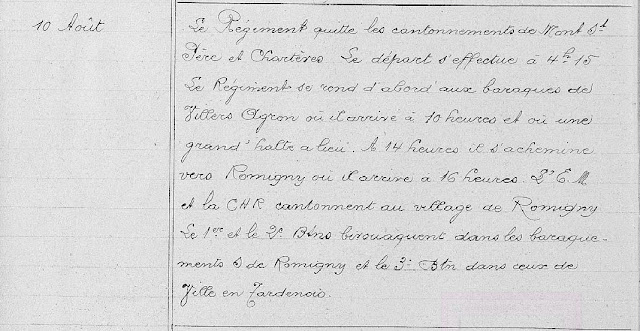 10 Août
Le Régiment quitte les cantonnements de Mont St
Père et Chartèves Le départ s'effectue à 4h15
Le Régiment se rend d'abord aux baraques de
Villers Agron où il arrive à 10 heures et où une
grand' halte a lieu. A 14 heures il s'achemine
vers Romigny où il arrive à 16 heures. L'E.M
et la CHR cantonnent au village de Romigny
Le 1er et le 2e Btns bivouaquent dans les baraque-
ments S de Romigny et le 3e Btn dans ceux de
Ville en Tardenois.